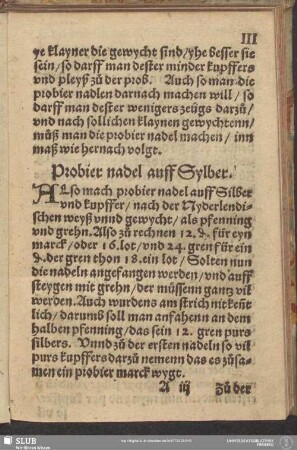 III
ye klayner die gewycht sind/yhe besser sie
sein/so darff man dester minder kupffers
vnd pleyß zů der prob. Auch so man die
probier nadlen darnach machen will/so
darff man dester wenigers zeügs darzů/
vnd nach sollichen klaynen gewychtenn/
můß man die probier nadel machen/inn
maß wie hernach volgt.
Probier nadel auff Sylber.
ALso mach probier nadel auff Silber
vnd kupffer/nach der Nyderlendi-
schen weyß vnnd gewycht/als pfenning
vnd grehn. Also zů rechnen 12. d. für eyn
marck/oder 16. lot/vnd 24. gren für ein
d. der gren thon 18. ein lot/Solten nun
die nadeln angefangen werden/vnd auff
steygen mit grehn/der müssenn gantz vil
werden. Auch wurdens am strich nit keñt
lich/darumb soll man anfahenn an dem
halben pfenning/das sein 12. gren purs
silbers. Vnnd zů der ersten nadeln so vil
purs kupffers darzů nemenn das es zůsa-
men ein probier marck wygt.
A iij
Zů der
SLUB